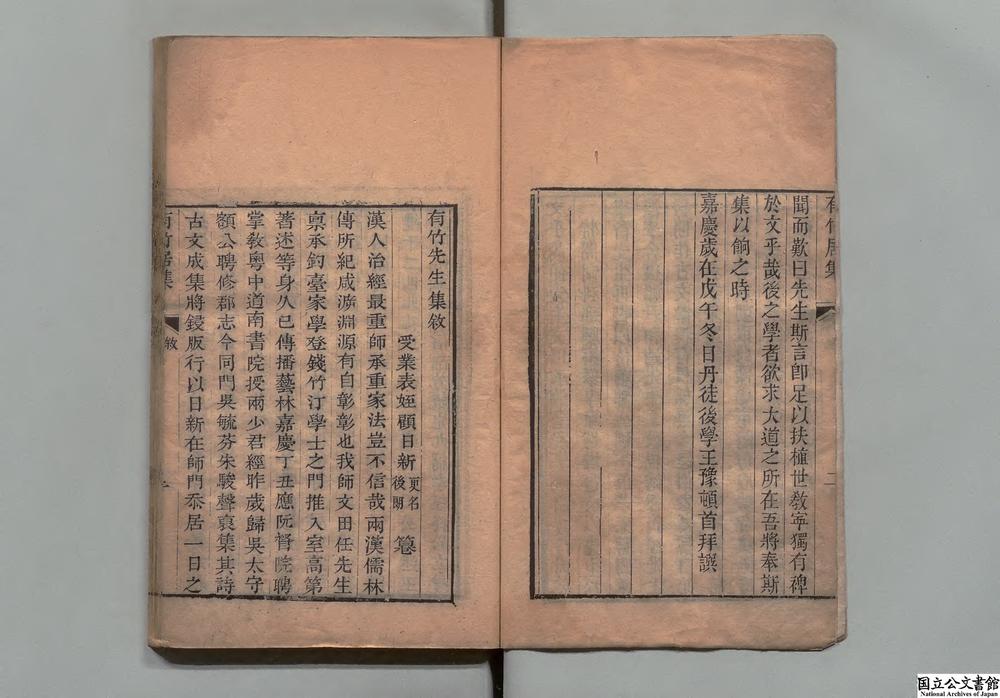 有竹居集
二
聞而歎曰先生斯言卽足以扶植世敎寧獨有裨
於文乎哉後之學者欲求大道之所在吾將奉斯
集以餉之時
嘉慶歲在戊午冬日丹徒後學王豫頓首拜譔
有竹先生集敘
受業表姪顧日新更名後閒
漢人治經最重師承重家法豈不信哉兩漢儒林
傳所紀咸泝淵源有自彰彰也我師文田任先生
稟承釣臺家學登錢竹汀學士之門推入室高第
著述等身久已傳播藝林嘉慶丁丑應阮督院聘
掌敎粵中道南書院授兩少君經昨歲歸吳太守
額公聘修郡志今同門吳毓芬朱駿聲裒集其詩
古文成集將鋟版行以日新在師門忝居一日之
有竹居集
敘
国立公文書館
National Archives of Japan